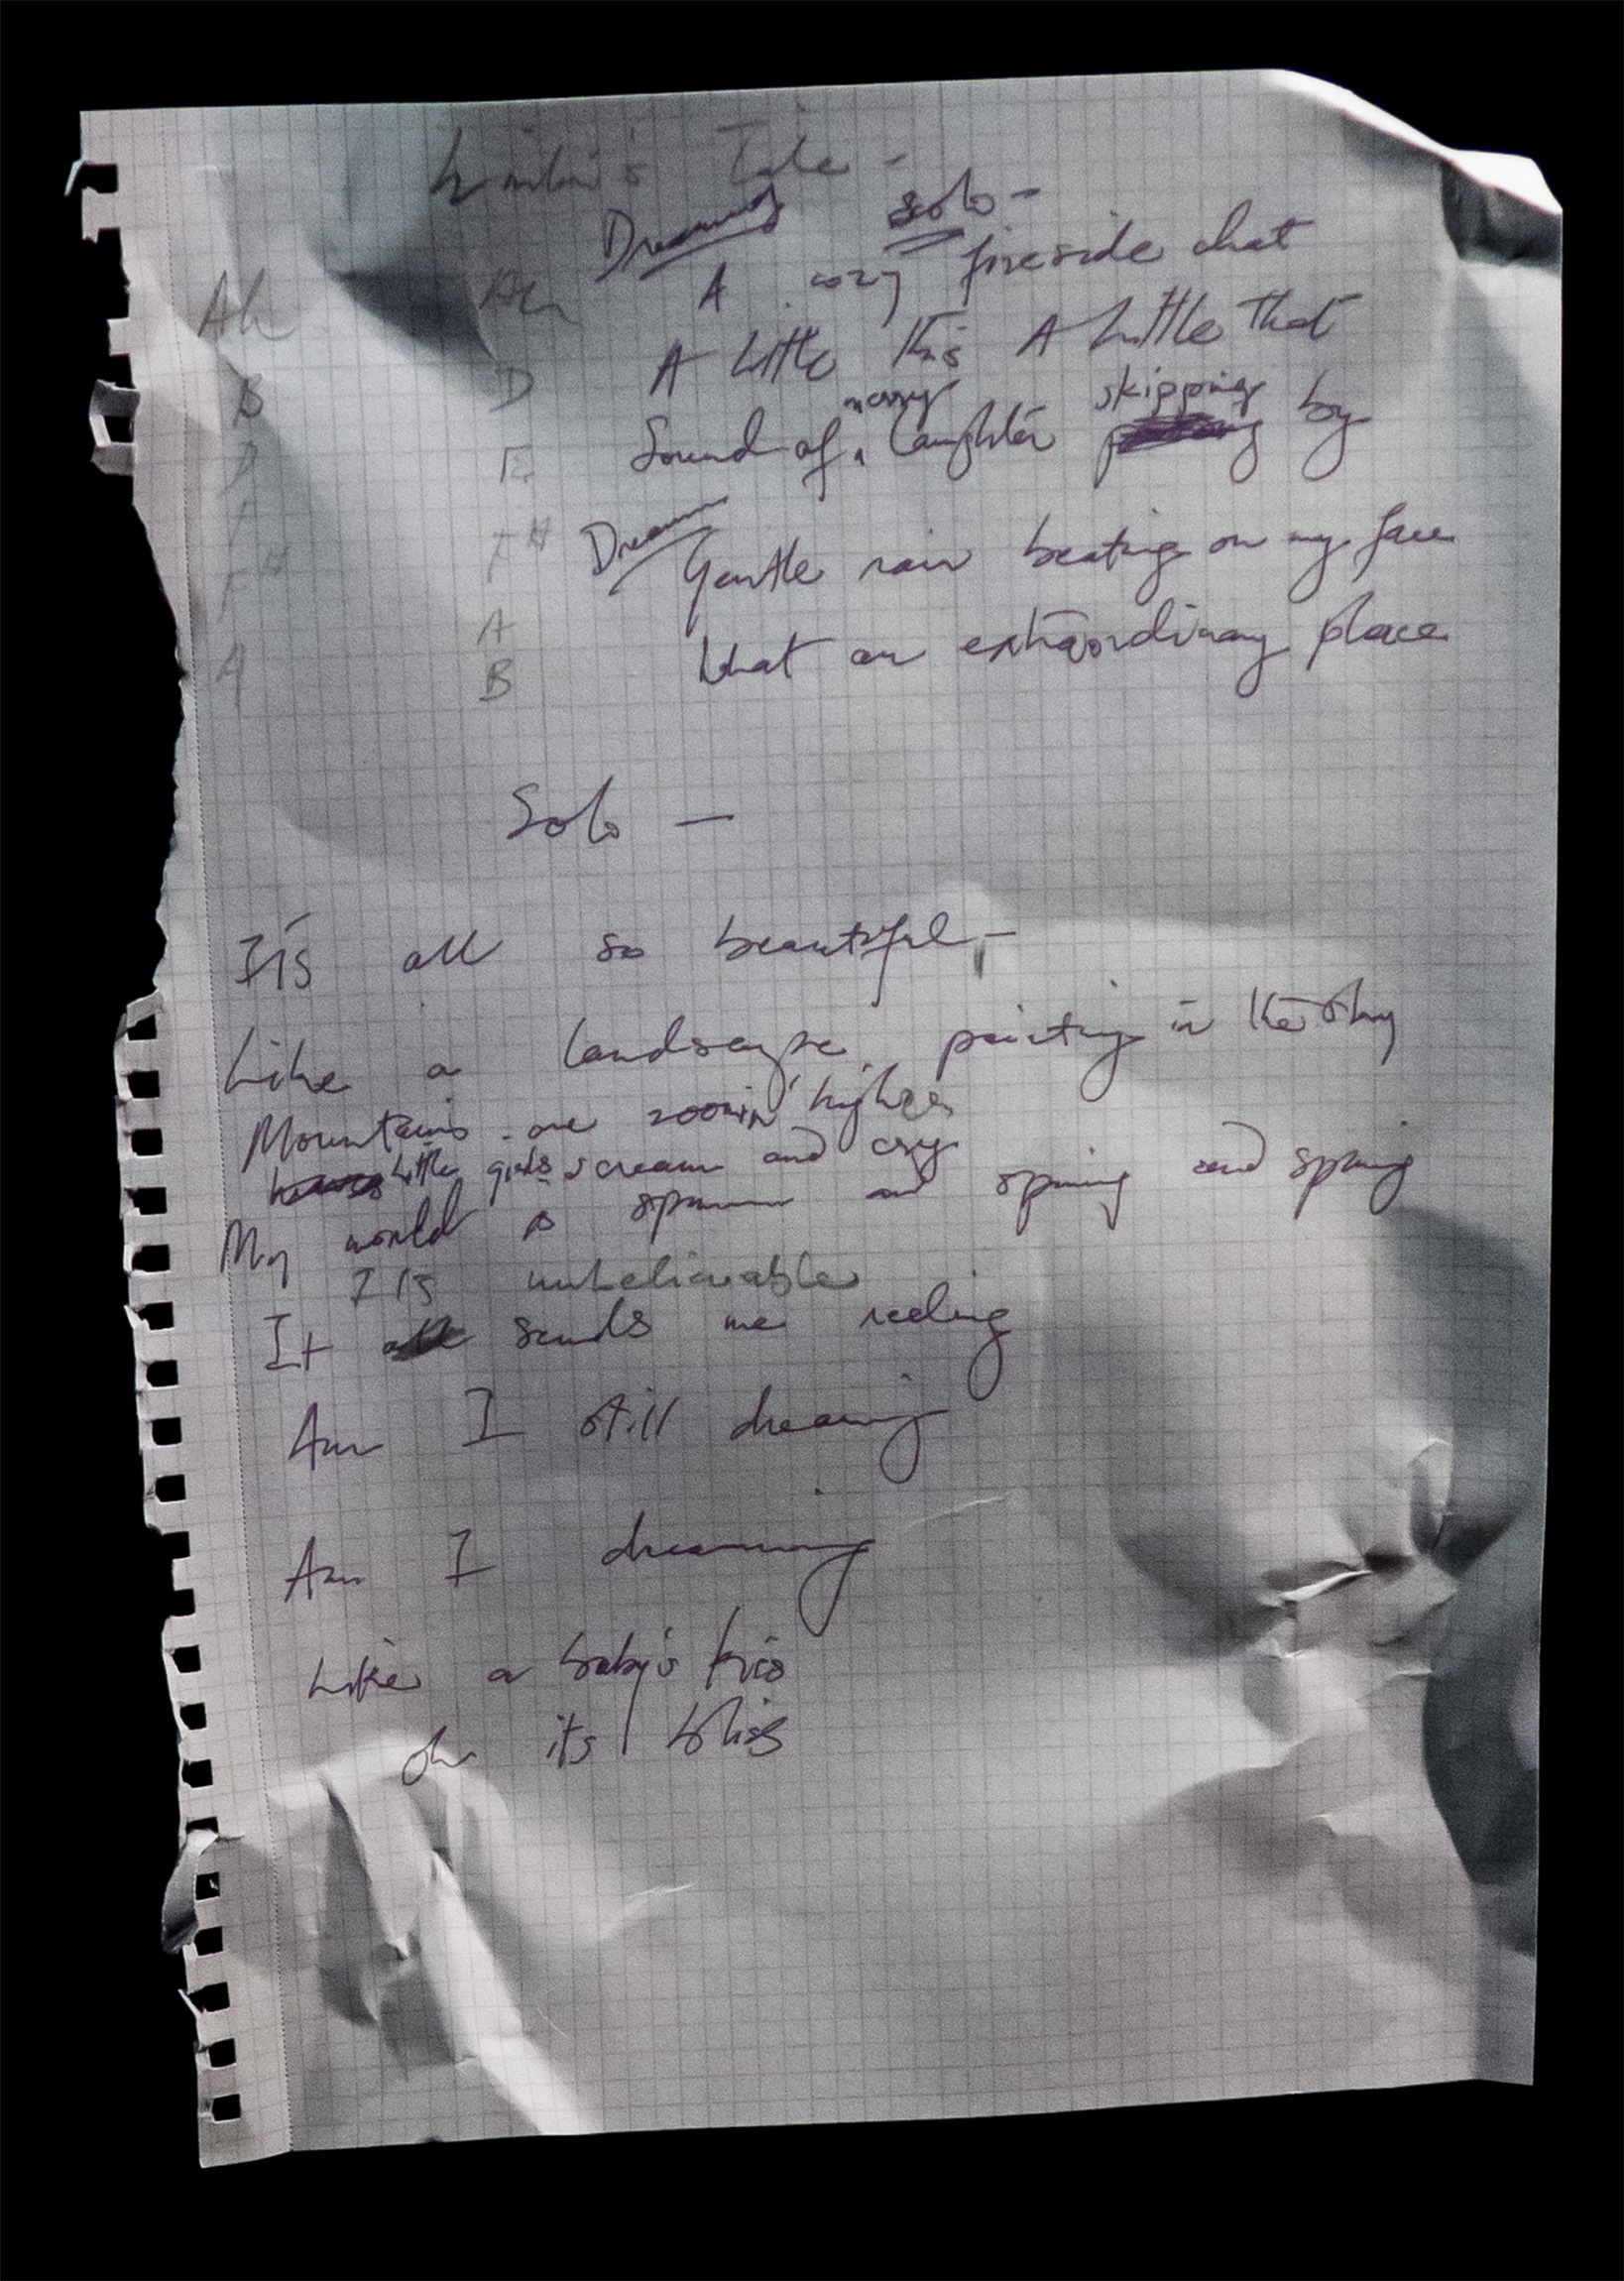 Tale -
Dreams solo -
Ah Ah A cozy fireside chat
A little this A little that
B D
merry skipping
Sound of laughter by
D E
Dream
F# F# Gentle rain beating on my face
A
What an extraordinary place
A B
Solo —
It's all so beautiful —
Like a landscape painting in the sky
Mountains are zoomin' higher
little girls scream and cry
My world is spinnin and spining and spining
It's unbelievable
It sends me reeling
Am I still dreaming
Am I dreaming
Like a baby's kiss
Oh its bliss